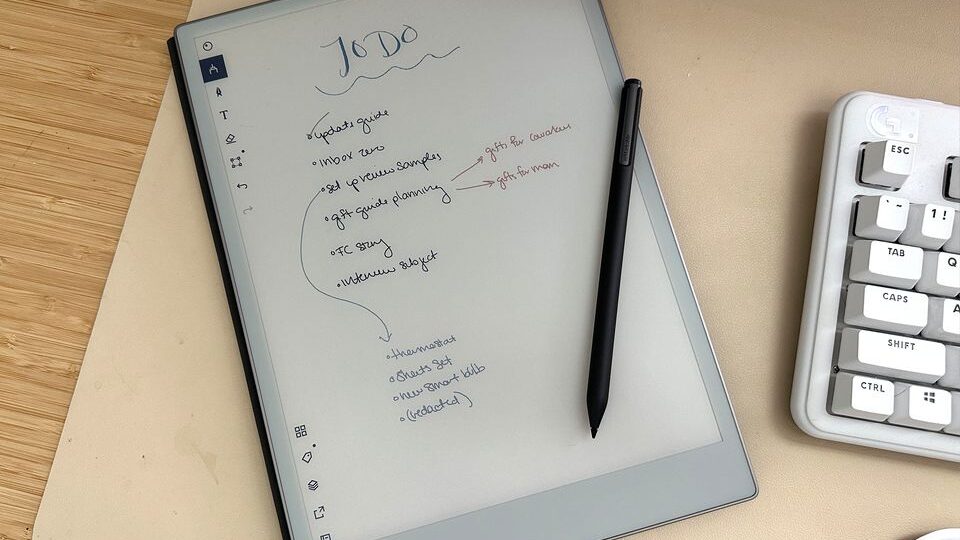 TO DO
• update guide
• inbox zero
• set up review samples
• gift guide planning
gifts for coworkers
gifts for mom
• FC story
• Interview subject
• thermostat
• sheets set
• new smart bulb
• (redacted)
T
G
ESC
` ~
1 !
TAB
Q
CAPS
A
SHIFT
CTRL